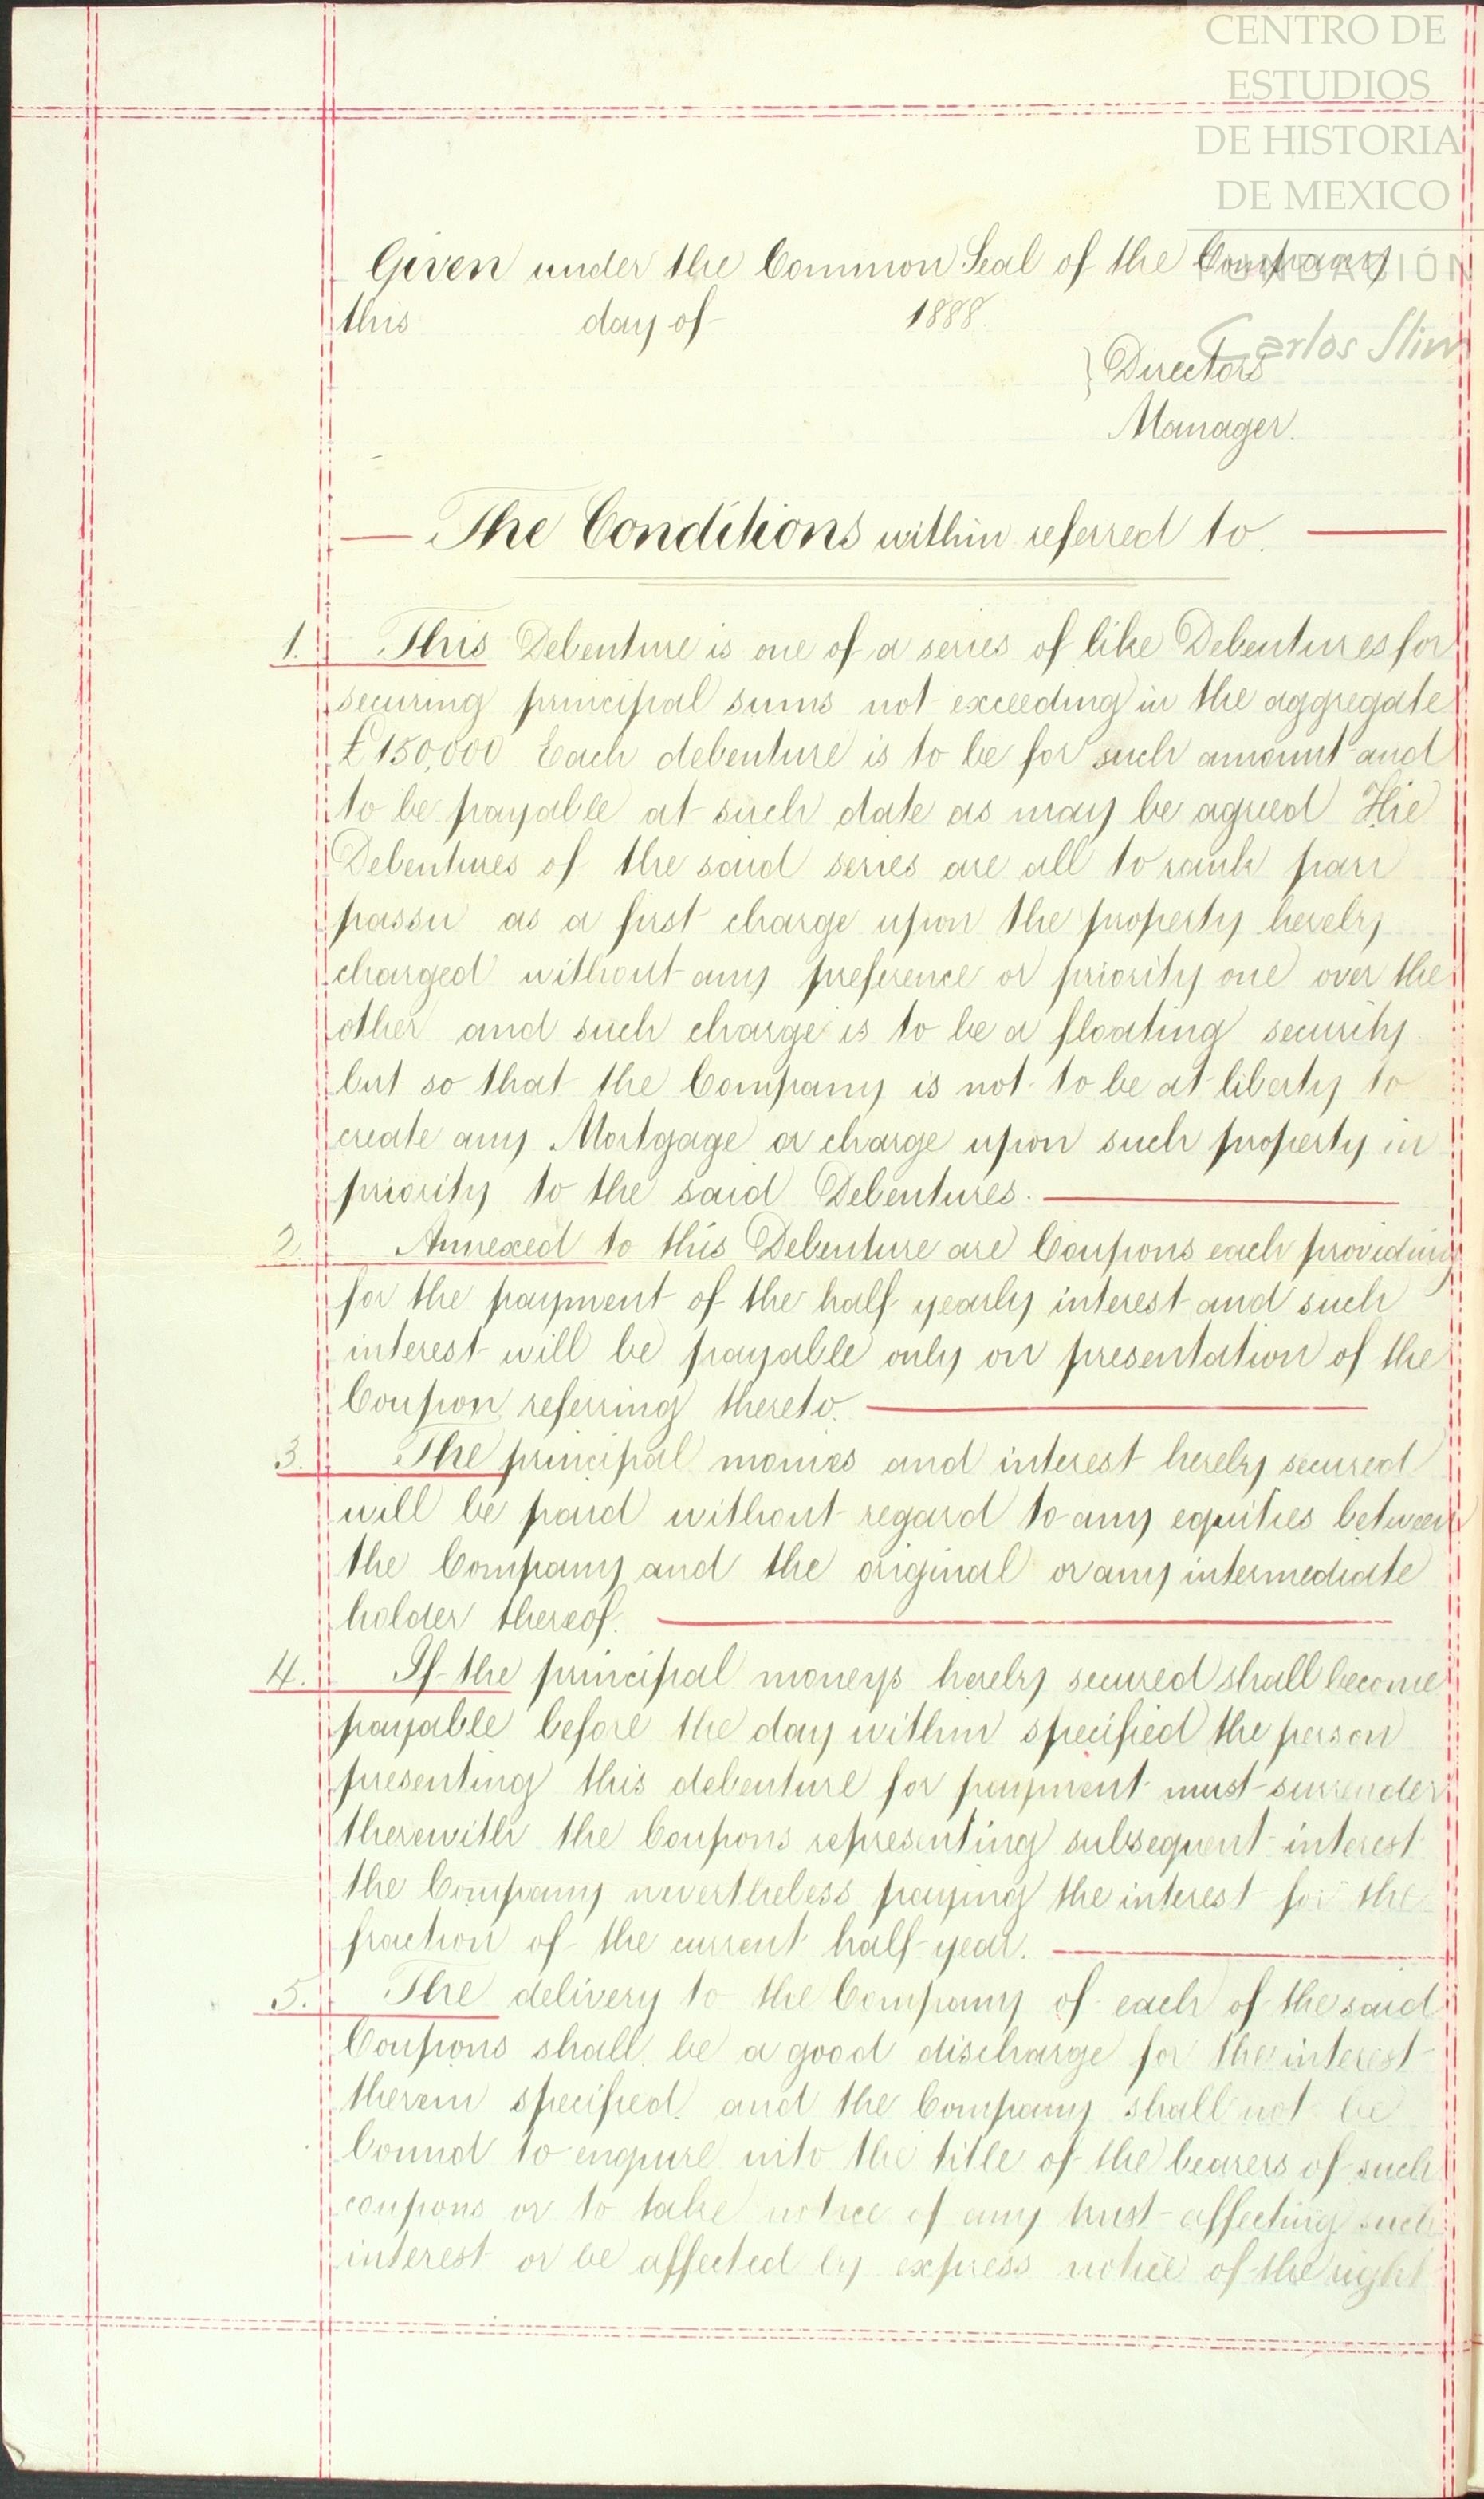 CENTRO DE
ESTUDIOS
DE HISTORIA
DE MEXICO
FUNDACIÓN
Carlos Slim
Given under the Common Seal of the Company
this day of 1888.
Directors
Manager.
The Conditions within referred to.
1. This Debenture is one of a series of like Debentures for
securing principal sums not exceeding in the aggregate
£150,000 Each debenture is to be for such amount and
to be payable at such date as may be agreed The
Debentures of the said series are all to rank pari
passu as a first charge upon the property hereby
charged without any preference or priority one over the
other and such charge is to be a floating security
but so that the Company is not to be at liberty to
create any Mortgage or charge upon such property in
priority to the said Debentures.
2. Annexed to this Debenture are Coupons each providing
for the payment of the half yearly interest and such
interest will be payable only on presentation of the
Coupon referring thereto.
3. The principal monies and interest hereby secured
will be paid without regard to any equities between
the Company and the original or any intermediate
holder thereof.
4. If the principal moneys hereby secured shall become
payable before the day within specified the person
presenting this debenture for payment must surrender
therewith the Coupons representing subsequent interest
the Company nevertheless paying the interest for the
fraction of the current half-year.
5. The delivery to the Company of each of the said
Coupons shall be a good discharge for the interest
therein specified and the Company shall not be
bound to enquire into the title of the bearers of such
coupons or to take notice of any trust affecting such
interest or be affected by express notice of the right